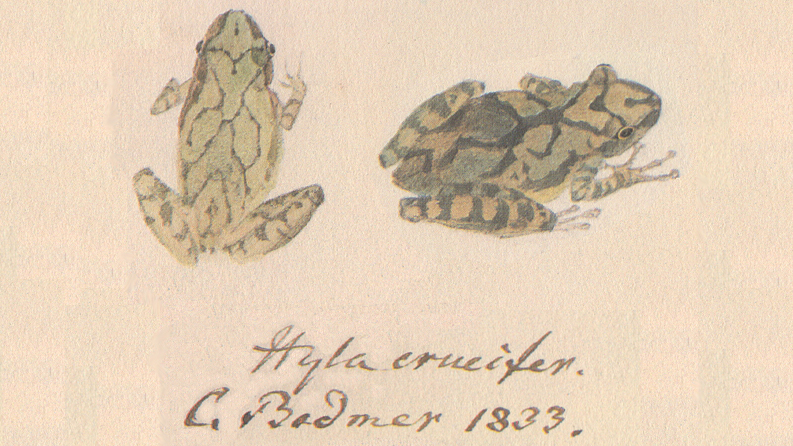 Hyla crucifer.
C. Bodmer 1833.